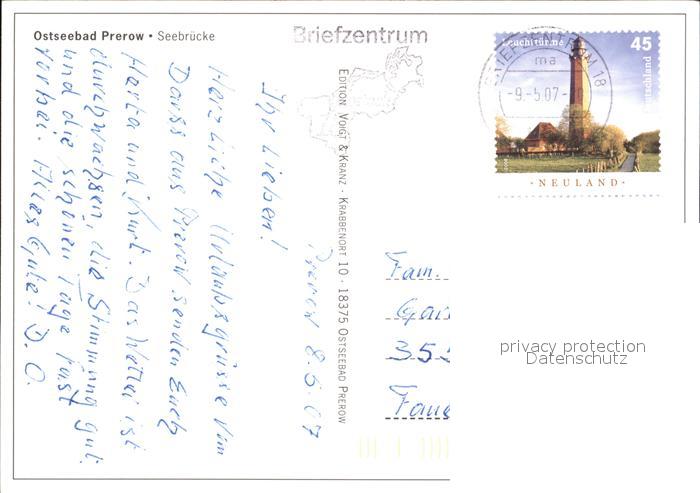 Ostseebad Prerow • Seebrücke
Prerow 8.5.07
Ihr Lieben!
Herzliche Urlaubsgrüsse vom
Darss aus Prerow senden Euch
Herta und Kurt. Das Wetter ist
durchwachsen, die Stimmung gut
und die schönen Tage fast
vorbei. Alles Gute! D. O.
EDITION VOIGT & KRANZ · KRABBENORT 10 · 18375 OSTSEEBAD PREROW
Briefzentrum
BRIEFZENTRUM 18
ma
-9.-5.07
Leuchttürme
45
Deutschland
· NEULAND ·
Fam.
355
privacy protection
Datenschutz